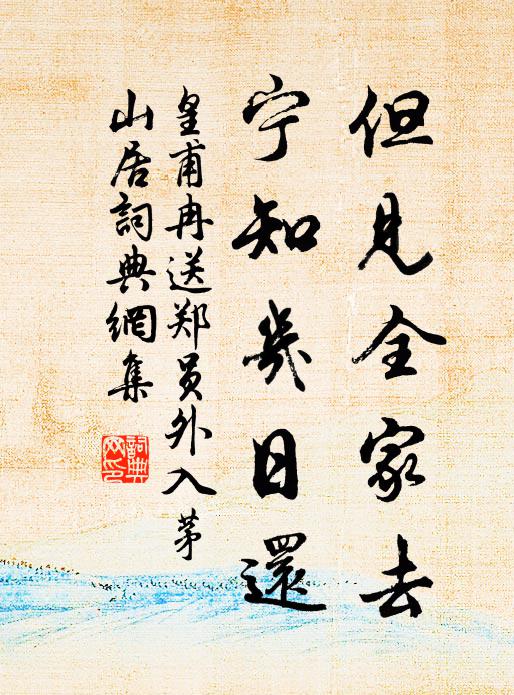 但见全家去
宁知几日還
皇甫冉送郑员外入茅
山居詞典網集
詞典网印